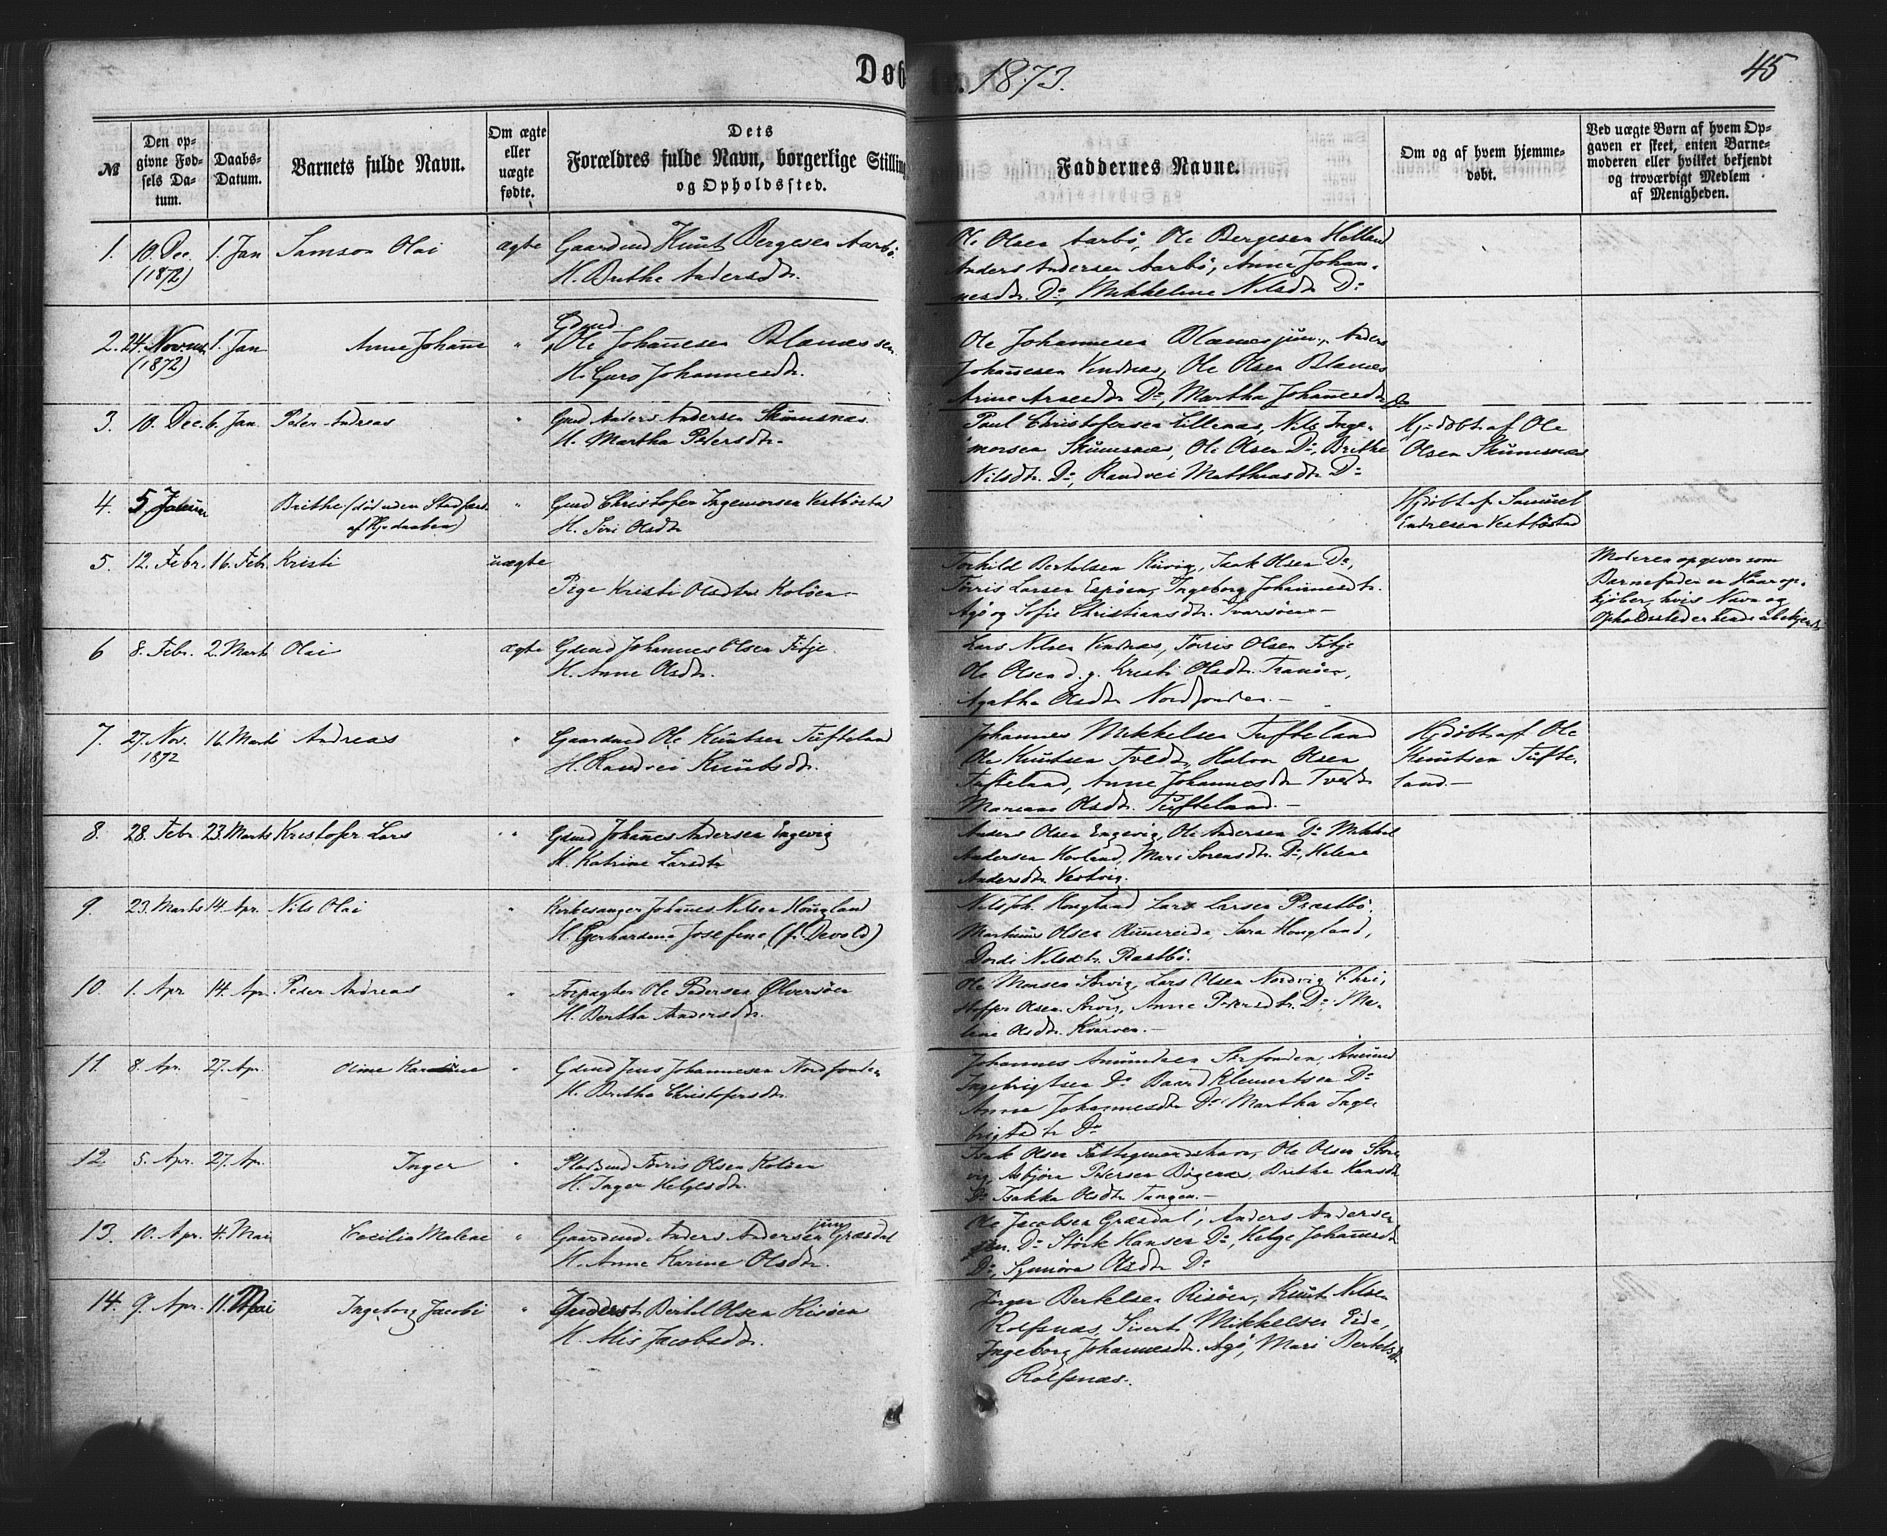 Døb
1873.
45
№
Den op-
givne Fød-
sels Da-
tum.
Daabs-
Datum.
Barnets fulde Navn.
Om ægte
eller
uægte
fødte.
Dets
Forældres fulde Navn, borgerlige Stilling
og Opholdssted.
Faddernes Navne.
Om og af hvem hjemme-
døbt.
Ved uægte Børn af hvem Op-
gaven er skeet, enten Barne-
moderen eller hvilket bekjendt
og troværdigt Medlem
af Menigheden.
1. 10. Dec. 1. Jan Samson Olai ægte Gaardmd Knut Bergesen Aarbø
(1872) H. Brithe Andersdtr.
Ole Olsen Aarbø, Ole Bergesen Helland
Anders Andersen Aarbø, Anne Johan-
nesdtr. Do, Mikkeline Nilsdtr Do
2. 24. Novem 1. Jan Anne Johanne " Gdmd
Ole Johannesen Blanes sen.
(1872) H. Guro Johannesdtr.
Ole Johannesen Blanes jun., Anders
Johannesen Vindnes, Ole Olsen Blanes
Arnesdtr Do, Martha Johannesdtr Do
3. 10. Dec. 6. Jan Peder Andreas " Gmd Anders Andersen Skumsnæs
H. Martha Pedersdtr.
Paul Christofersen Lillenæs, Nils Inge-
morsen Skumsnæs, Ole Olsen Do, Brithe
Nilsdtr. Do, Randvei Matthiasdtr Do
Hj: døbt af Ole
Olsen Skumsnæs
4. 5. Brithe (død uden Stadfæst
af Hj. daaben) " Gmd Christofer Ingemorsen Vestbøstad
H. Siri Olsdtr
Hjdøbt af Samuel
Endresen Vestbøstad
5. 12. Febr. 16. Febr. Kristi uægte
Pige Kristi Olsdtr Koløen
Torkild Bertelsen Kuvig, Isak Olsen Do,
Tørris Larsen Espøen, Ingeborg Johannesdtr.
Agø og Sofie Christiansdtr. Ivarsøen
Moderen opgiver som
Barnefader en Haarop-
kjøber, hvis Navn og
Opholdssted er hende ubekjendt
6 8. Febr. 2. Marts Olai ægte Gdmd Johannes Olsen Fitje
H. Anne Olsdtr.
Lars Nilsen Vindnæs, Tørris Olsen Fitje
Ole Olsen d. g. Kristi Olsdtr. Tranøen,
Agatha Olsdtr Nordfonden.
7. 27. Nov. 16. Marts Andreas " Gaardmd Ole Knutsen Tufteland
1872 H. Randvei Knutsdtr.
Johannes Mikkelsen Tufteland
Ole Knutsen Tvedt, Halvor Olsen
Tufteland, Anne Johannesdtr Tvedt
Mariane Olsdtr. Tufteland.
Hjdøbt af Ole
Knutsen Tufte-
land.
8. 28. Febr. 23. Marts Kristofer Lars " Gdmd Johannes Andersen Engevig
H. Katrine Larsdtr
Anders Olsen Engevig, Ole Andersen Do Mikkel
Andersen Hovland, Mari Sorensdtr. Do, Helene
Andersdtr. Vestvig.
9. 23. Marts 14. Apr. Nils Olai " Kirkesanger Johannes Nilsen Hougland
H. Gerhardine Josefine (f. Devold)
Nils Joh. Hougland Lars Larsen Præstbø,
Martinus Olsen Rimereide, Sara Hougland,
Dordi Nilsdtr. Præstbø.
10. 1. Apr 14. Apr. Peder Andreas " Forpagter Ole Pedersen Ølversøen
H. Bertha Andersdtr.
Ole Monsen Storvig, Lars Olsen Nordvig, Chri-
stoffer Olsen Anne Pedersdtr. Do Ma-
lene Olsdtr. Kvarven.
11. 8. Apr. 27. Apr. Oline Karoline " Gdmd Jens Johannesen Nordfonden
H. Britha Christofersdtr.
Johannes Amundsen Sørfonden, Amund
Ingebrigtsen Do Baard Klementsen Do
Anne Johannesdtr Do Martha Inge-
brigtsdtr Do
12. 5. Apr. 27. Apr. Inger " Pladsmd Tørris Olsen Koløen
H. Inger Helgesdtr.
Isak Olsen Fattigmandshavn, Ole Olsen Stor-
vig Asbjørn Petersen Bøgenæs, Britha Hansdtr
Do Isakka Olsdtr Tangen.
13. 10. Apr. 4. Mai Cecilia Malene " Gaardmd Anders Andersen jun Græsdal
H. Anne Karine Olsdtr.
Ole Jacobsen Græsdal, Anders Andersen
sen. Do Størk Hansen Do, Helge Johannesdtr
Do, Synnøva Olsdtr Do
14. 9. Apr. 11. Mai Ingeborg Jacobi " Bertel Olsen Risøen
H. Alis Jacobsdtr.
Jørgen Bertelsen Risøen, Knut Nilsen
Rolfsnæs, Sivert Mikkelsen Eide,
Ingeborg Johannesdtr. Agø, Mari Bertelsdtr
Rolfsnæs.